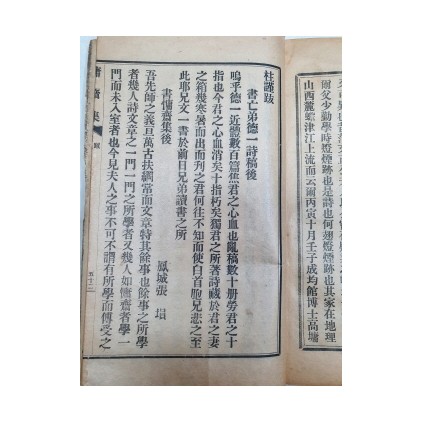 爾父少勤學時燈煙跡也是詩也何翅燈煙跡也其家在地理
山西麓螺津江上流而云爾丙寅十月壬子成均館博士高墉
柱謹跋
書亡弟德一詩稿後
嗚乎德一近體數百篇焦君之心血也亂稿數十册勞君之十
指也今君之心血消矣十指朽矣獨君之所著詩藏於君之妻
之箱幾寒暑而出而刋之君何往不知而使白首胞兄悲之至
此耶兄文一書於前日兄弟讀書之所
書慵齋集後
鳳城張 塤
吾先師之義亘萬古扶綱常而文章特其餘事也餘事之所學
者幾人詩文章之一門一門之所學者又幾人如慵齋者學一
門而未入室者也今見夫人之事不可不謂有所學而傅受之
慵齋集